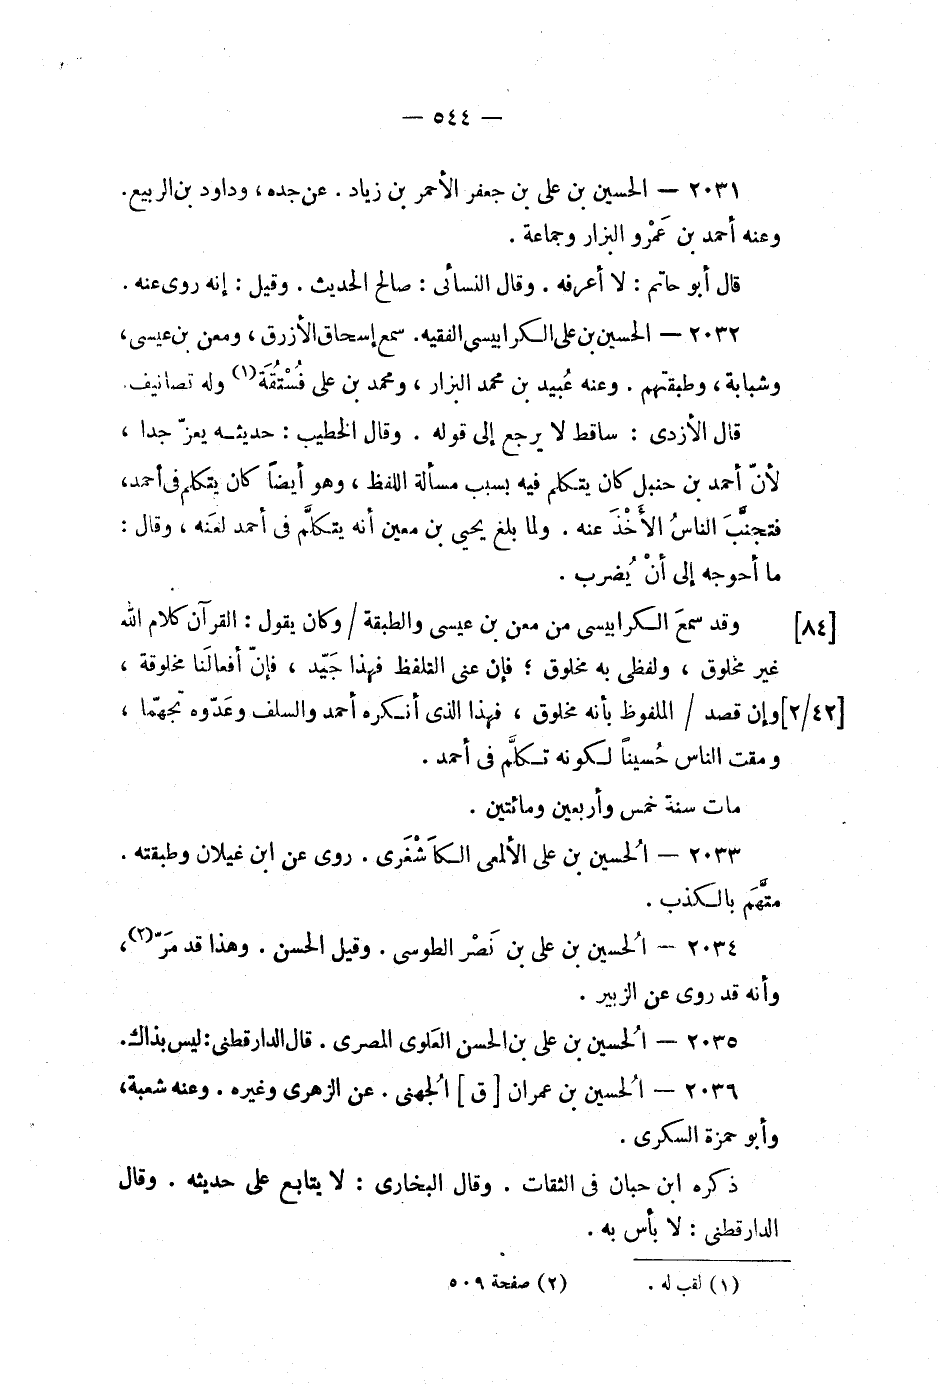 — ٥٤٤ —
٢٠٣١ — الحسين بن على بن جعفر الأحمر بن زياد . عن جده ، وداود بن الربيع .
وعنه أحمد بن عَمْرو البزار وجماعة .
قال أبو حاتم : لا أعرفه . وقال النسائى : صالح الحديث . وقيل : إنه روى عنه .
٢٠٣٢ — الحسين بن على الكرابيسى الفقيه. سمع إسحاق الأزرق ، ومعن بن عيسى ،
وشبابة ، وطبقتهم . وعنه عُبيد بن محمد البزار ، ومحمد بن على فُسْتُقَة(١) وله تصانيف.
قال الأزدى : ساقط لا يرجع إلى قوله . وقال الخطيب : حديثه يعزّ جدا ،
لأنّ أحمد بن حنبل كان يتكلم فيه بسبب مسألة اللفظ ، وهو أيضاً كان يتكلم فى أحمد،
فتجنَّبَ الناسُ الأَخْذَ عنه . ولما بلغ يحيى بن معين أنه يتكلَّم فى أحمد لعَنه ، وقال :
ما أحوجه إلى أنْ يُضرب .
[٨٤] وقد سمعَ الكرابيسى من معن بن عيسى والطبقة / وكان يقول : القرآن كلام الله
غير مخلوق ، ولفظى به مخلوق ؛ فإن عنى التلفظ فهذا جَيّد ، فإنّ أفعالَنا مخلوقة ،
[٢/٤٢] وإن قصد / الملفوظ بأنه مخلوق ، فهذا الذى أنكره أحمد والسلف وعَدّوه تجهّما ،
ومقت الناس حُسيناً لكونه تكلَّم فى أحمد .
مات سنة خمس وأربعين ومائتين .
٢٠٣٣ — الُحسين بن على الألمعى الكاَشْغَرى . روى عن ابن غيلان وطبقته .
متَّهَم بالكذب .
٢٠٣٤ — الُحسين بن على بن نَصْر الطوسى . وقيل الحسن . وهذا قد مَرّ(٢)،
وأنه قد روى عن الزبير .
٢٠٣٥ — الُحسين بن على بن الحسن العَلوى المصرى . قال الدارقطنى : ليس بذاك.
٢٠٣٦ — الُحسين بن عمران [ ق ] الُجهنى . عن الزهرى وغيره . وعنه شعبة،
وأبو حمزة السكرى .
ذكره ابن حبان فى الثقات . وقال البخارى : لا يتابع على حديثه . وقال
الدارقطنى : لا بأس به .
(١) لقب له . (٢) صفحة ٥٠٩